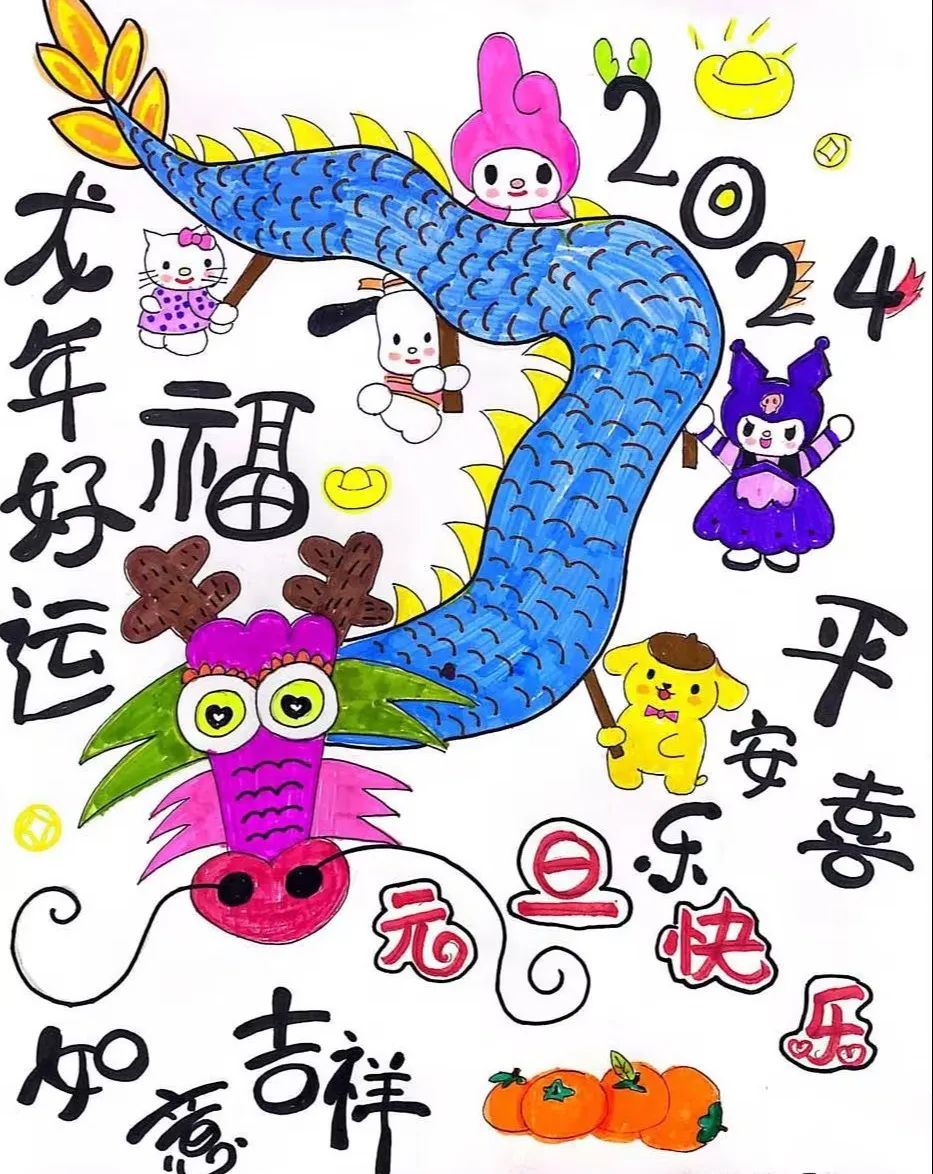 2024
龙年好运
福
平安喜乐
元旦快乐
如意吉祥